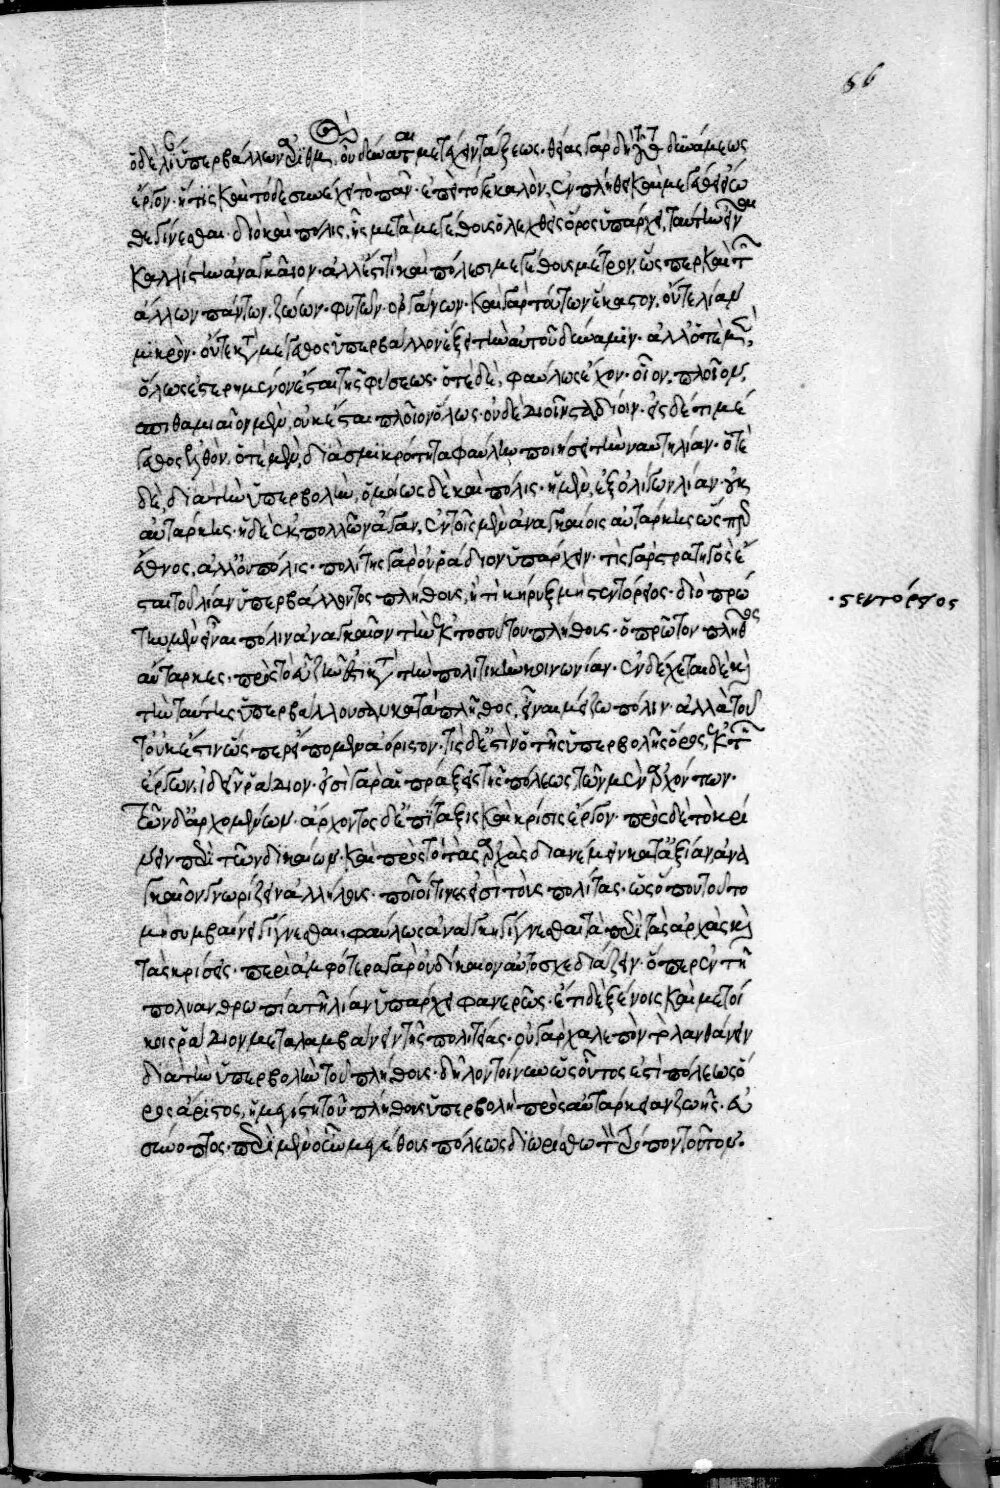 66
ὁ δὲ λίαν ὑπερβάλλων ἀριθμὸς, οὐ δύναται μετέχειν τάξεως· θείας γὰρ δὴ τοῦτο δυνάμεως
ἔργον· ἥτις καὶ τόδε συνέχει τὸ πᾶν· ἐπεὶ τό γε καλὸν, ἐν πλήθει καὶ μεγέθει εἴω
θε γίνεσθαι· διὸ καὶ πόλις, ἧς μετὰ μεγέθους ὁ λεχθεὶς ὅρος ὑπάρχει, ταύτην εἶναι
καλλίστην ἀναγκαῖον· ἀλλ' ἔστι τι καὶ πόλεσι μεγέθους μέτρον, ὥσπερ καὶ τῶν
ἄλλων πάντων, ζώων· φυτῶν· ὀργάνων· καὶ γὰρ τούτων ἕκαστον, οὔτε λίαν
μικρὸν· οὔτε κατὰ μέγεθος ὑπερβάλλον ἕξει τὴν αὑτοῦ δύναμιν· ἀλλ' ὁτὲ μὲν,
ὅλως ἐστερημένον ἔσται τῆς φύσεως· ὁτὲ δὲ, φαύλως ἔχον· οἷον, πλοῖον,
σπιθαμιαῖον μὲν, οὐκ ἔσται πλοῖον ὅλως· οὐδὲ δυοῖν σταδίοιν· εἰς δέ τι μέ
γεθος ἐλθὸν, ὁτὲ μὲν, διὰ σμικρότητα φαύλην ποιήσει τὴν ναυτιλίαν· ὁτὲ
δὲ, διὰ τὴν ὑπερβολὴν, ὁμοίως δὲ καὶ πόλις· ἡ μὲν, ἐξ ὀλίγων λίαν· οὐκ
αὐτάρκης· ἡ δὲ ἐκ πολλῶν ἄγαν, ἐν τοῖς μὲν ἀναγκαίοις αὐτάρκης ὥσπερ
ἔθνος, ἀλλ' οὐ πόλις· πολιτείαν γὰρ οὐ ῥάδιον ὑπάρχειν· τίς γὰρ στρατηγὸς ἔ
σται τοῦ λίαν ὑπερβάλλοντος πλήθους, ἢ τί κήρυξ μὴ στεντόρειος· διὸ πρώ
την μὲν εἶναι πόλιν ἀναγκαῖον τὴν ἐκ τοσούτου πλήθους· ὃ πρῶτον πλῆθος
αὔταρκες· πρὸς τὸ εὖ ζῆν ἐστὶ κατὰ τὴν πολιτικὴν κοινωνίαν· ἐνδέχεται δὲ καὶ
τὴν ταύτης ὑπερβάλλουσαν κατὰ πλῆθος, εἶναι μείζω πόλιν· ἀλλὰ τοῦ
τ' οὐκ ἔστιν ὥσπερ εἴπομεν ἀόριστον· τίς δέ ἐστιν ὁ τῆς ὑπερβολῆς ὅρος, ἐκ τῶν
ἔργων, ἰδεῖν ῥάδιον· εἰσὶ γὰρ αἱ πράξεις τῆς πόλεως, τῶν μὲν ἀρχόντων·
τῶν δ' ἀρχομένων· ἄρχοντος δ' ἐπίταξις καὶ κρίσις ἔργον· πρὸς δὲ τὸ κρί
νειν περὶ τῶν δικαίων· καὶ πρὸς τὸ τὰς ἀρχὰς διανέμειν κατ' ἀξίαν ἀναγ
καῖον γνωρίζειν ἀλλήλους· ποῖοί τινές εἰσι τοὺς πολίτας· ὡς ὅπου τοῦτο
μὴ συμβαίνει γίγνεσθαι, φαύλως ἀνάγκη γίγνεσθαι τὰ περὶ τὰς ἀρχὰς καὶ
τὰς κρίσεις· περὶ ἀμφότερα γὰρ οὐ δίκαιον αὐτοσχεδιάζειν· ὅπερ ἐν τῇ
πολυανθρωπίᾳ τῇ λίαν ὑπάρχει φανερῶς· ἔτι δὲ ξένοις καὶ μετοί
κοις ῥάδιον μεταλαμβάνειν τῆς πολιτείας· οὐ γὰρ χαλεπὸν τὸ λανθάνειν
διὰ τὴν ὑπερβολὴν τοῦ πλήθους· δῆλον τοίνυν ὡς οὗτός ἐστι πόλεως ὅ
ρος ἄριστος, ἡ μεγίστη τοῦ πλήθους ὑπερβολὴ πρὸς αὐτάρκειαν ζωῆς· εὐ
σύνοπτος· περὶ μὲν οὖν μεγέθους πόλεως διωρίσθω τὸν τρόπον τοῦτον·
·στεντόρειος